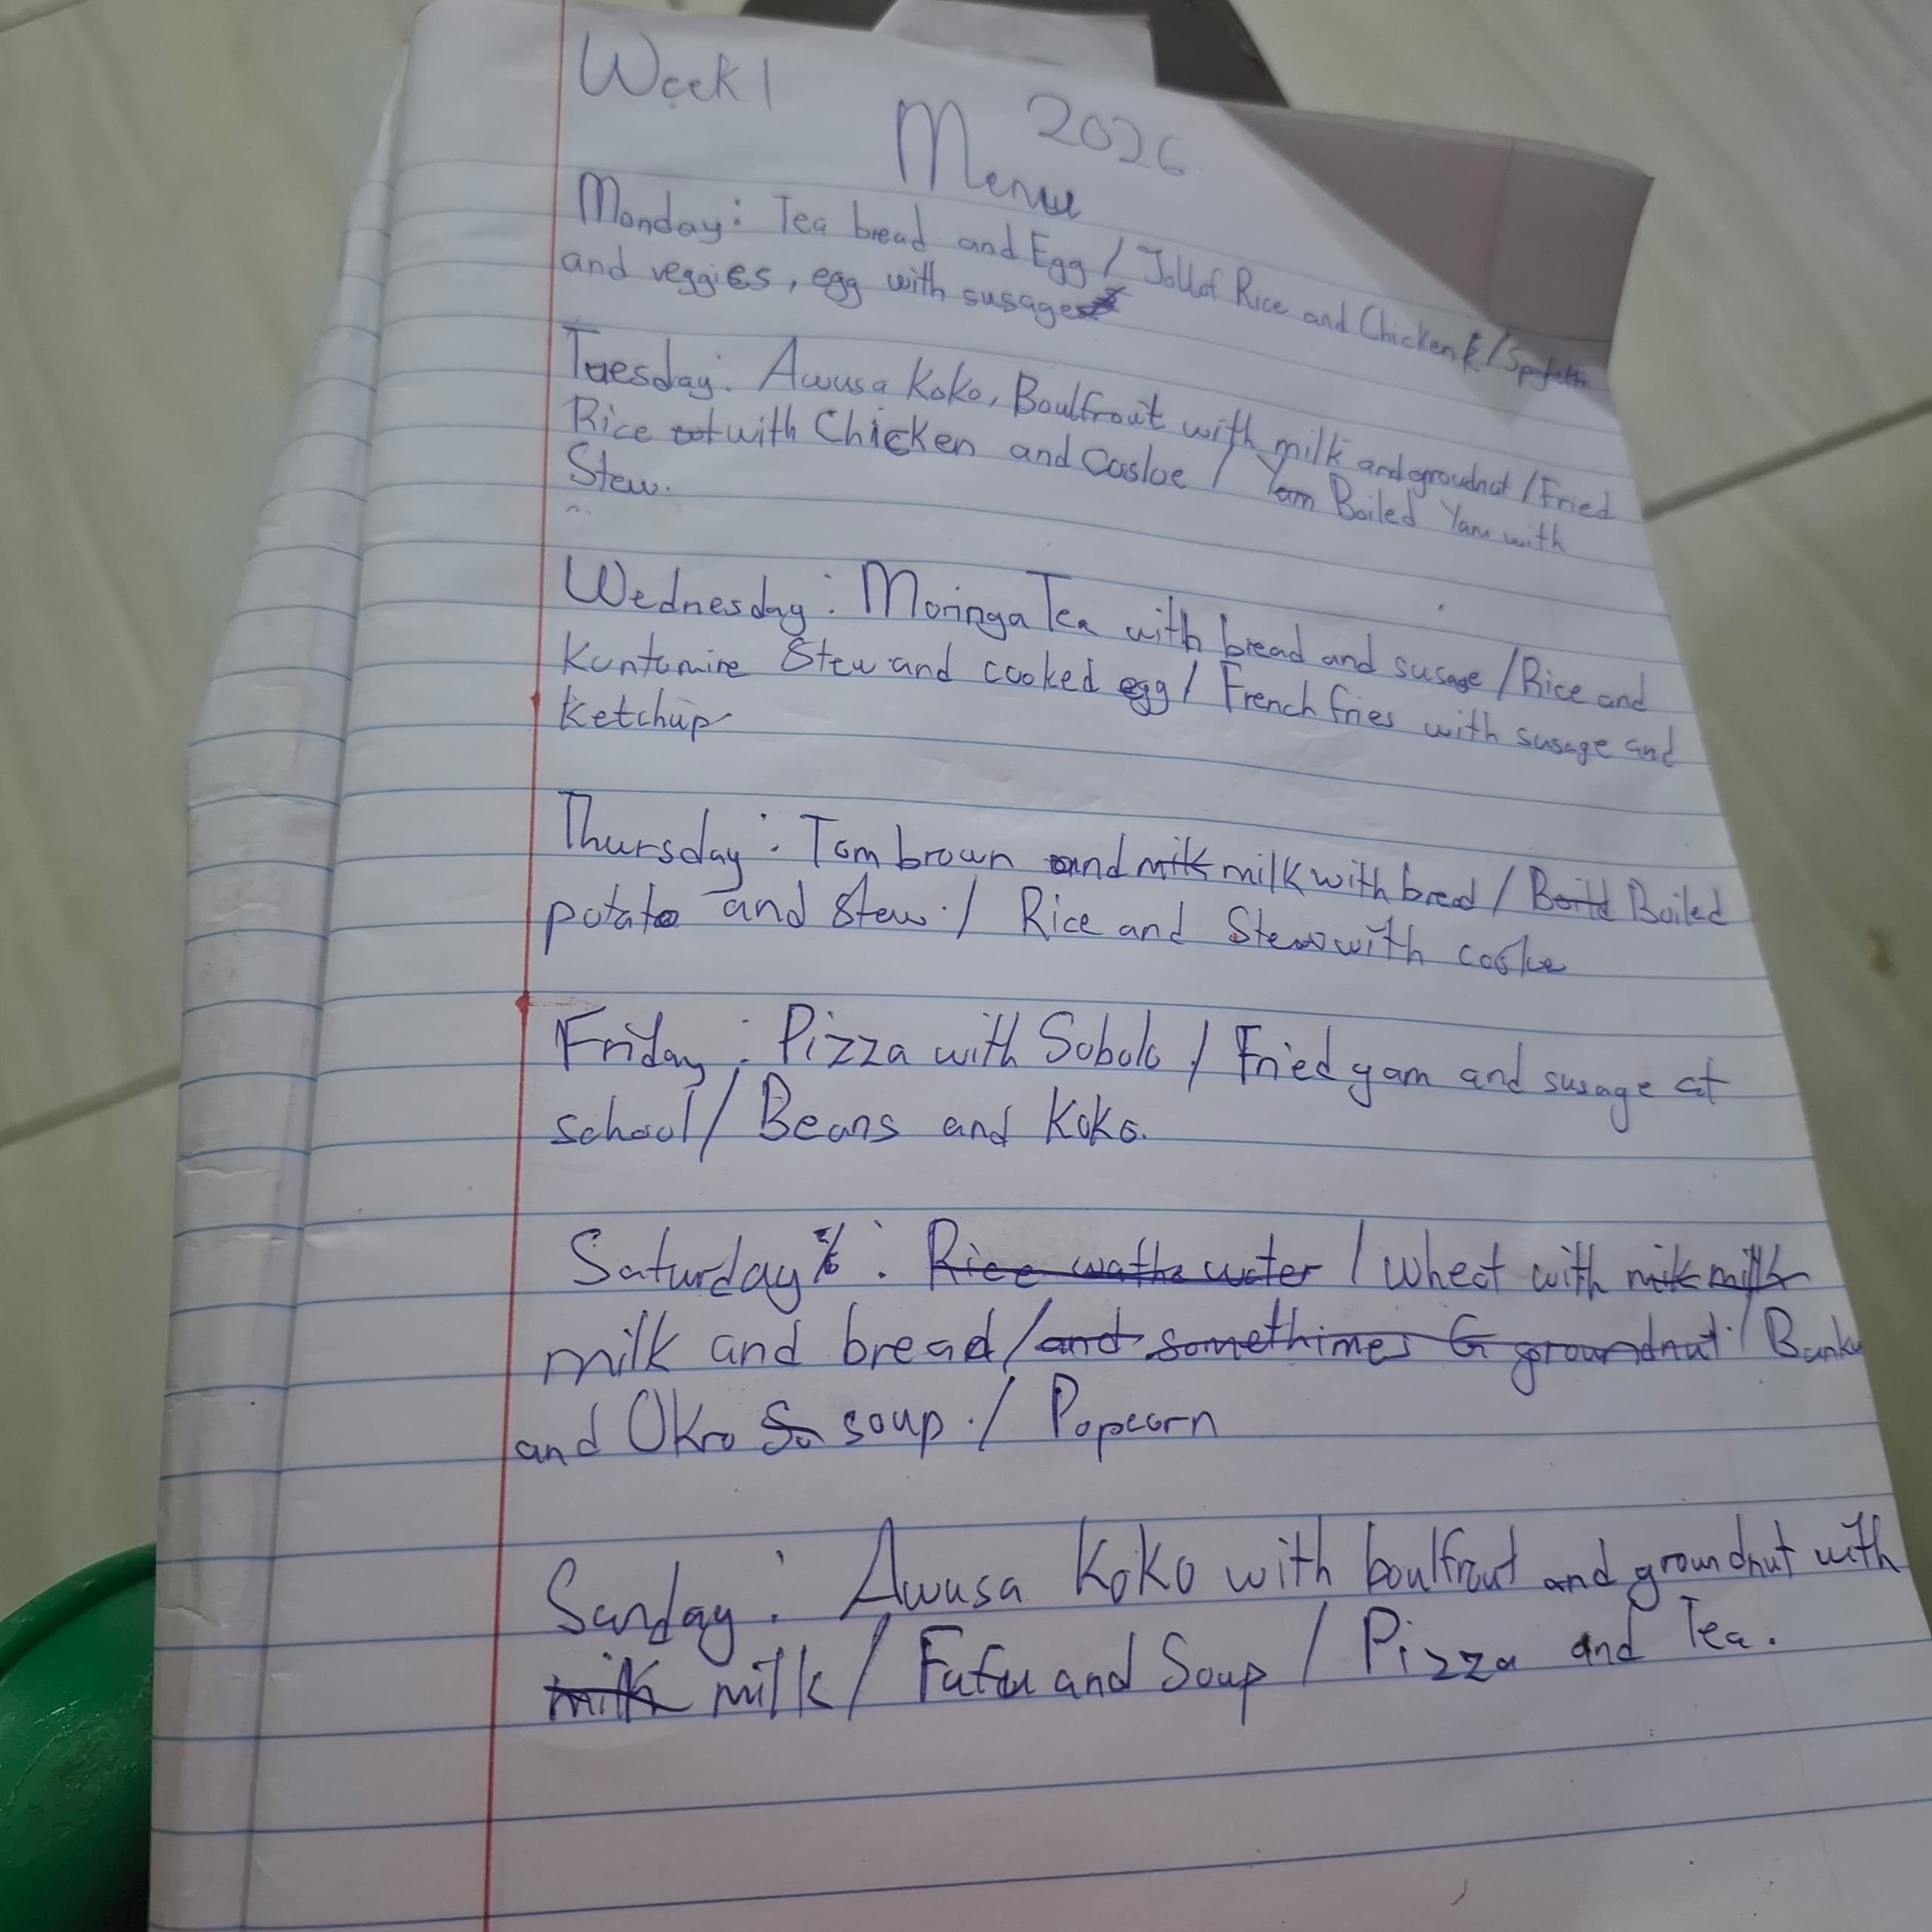 Week 1
2026
Menu
Monday: Tea bread and Egg / Jollof Rice and Chicken /
and veggies, egg with susage
Tuesday. Awusa Koko, Boulfrout with milk and groudnut / Fried
Rice with Chicken and Cosloe / Yam Boiled Yam with
Stew.
Wednesday: Moringa Tea with bread and susage / Rice and
Kontomire Stew and cooked egg / French fries with susage and
Ketchup
Thursday: Tom brown and milk with bread / Boiled
potato and stew. / Rice and Stew with cosloe
Friday: Pizza with Sobolo / Fried yam and susage at
school / Beans and Koko.
Saturday: Rice wathe water / wheat with milk milk
milk and bread / and somethimes G groundnut / Banku
and Okro So soup. / Popcorn
Sunday: Awusa Koko with boulfrout and groundnut with
milk milk / Fufu and Soup / Pizza and Tea.